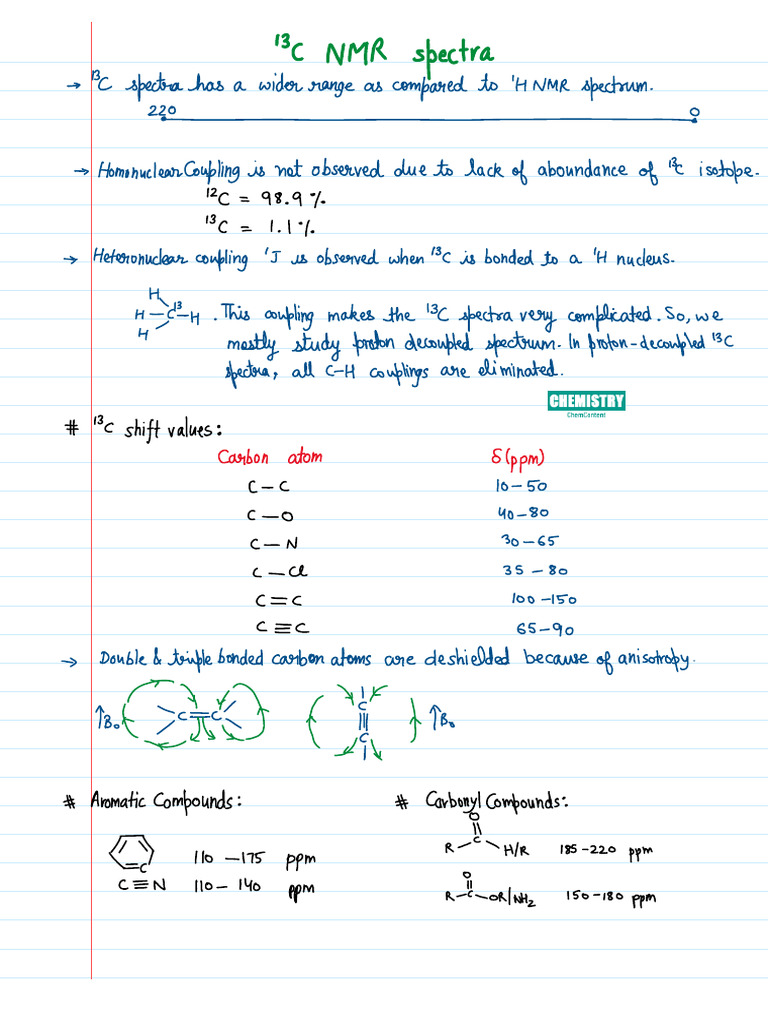 ¹³C NMR spectra
→ ¹³C spectra has a wider range as compared to ¹H NMR spectrum.
220 0
→ Homonuclear Coupling is not observed due to lack of aboundance of ¹³C isotope.
¹²C = 98.9 %
¹³C = 1.1 %
→ Heteronuclear coupling ¹J is observed when ¹³C is bonded to a ¹H nucleus.
H
H – C¹³ – H . This coupling makes the ¹³C spectra very complicated. So, we
H
mostly study proton decoupled spectrum. In proton-decoupled ¹³C
spectra, all C–H couplings are eliminated.
CHEMISTRY
ChemContent
# ¹³C shift values:
Carbon atom δ(ppm)
C – C 10–50
C – O 40–80
C – N 30–65
C – Cl 35 – 80
C = C 100–150
C ≡ C 65–90
→ Double & triple bonded carbon atoms are deshielded because of anisotropy.
↑B₀ C=C C≡C ↑B₀
# Aromatic Compounds: # Carbonyl Compounds:
O
R – C – H/R 185–220 ppm
C 110 – 175 ppm
C ≡ N 110 – 140 ppm
O
R – C – OR/NH₂ 150–180 ppm